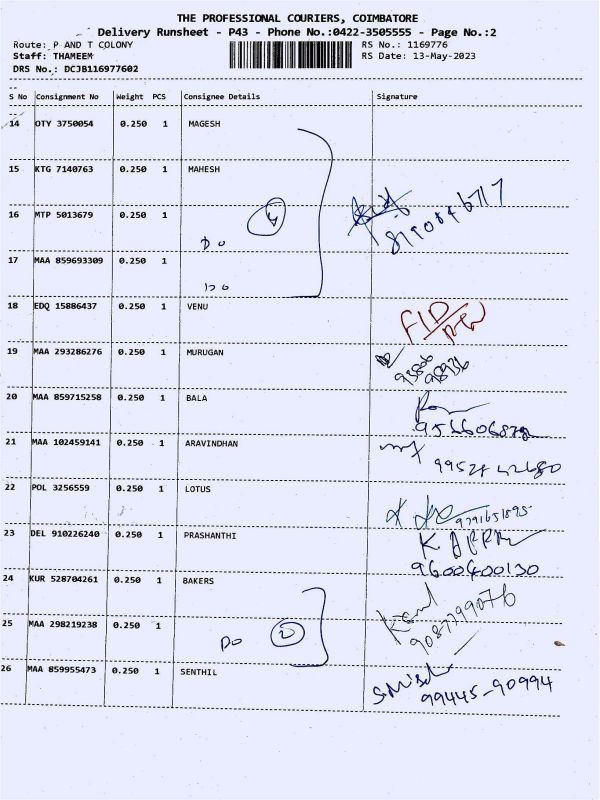 THE PROFESSIONAL COURIERS, COIMBATORE
Delivery Runsheet - P43 - Phone No.:0422-3505555 - Page No.:2
Route: P AND T COLONY RS No.: 1169776
Staff: THAMEEM RS Date: 13-May-2023
DRS No.: DCJB116977602
S No Consignment No Weight PCS Consignee Details Signature
14 OTY 3750054 0.250 1 MAGESH
15 KTG 7140763 0.250 1 MAHESH
16 MTP 5013679 0.250 1
4
Do
17 MAA 859693309 0.250 1
Do
18 EDQ 15886437 0.250 1 VENU
19 MAA 293286276 0.250 1 MURUGAN
20 MAA 859715258 0.250 1 BALA
21 MAA 102459141 0.250 1 ARAVINDHAN
22 POL 3256559 0.250 1 LOTUS
9791651895
23 DEL 910226240 0.250 1 PRASHANTHI
9600400130
24 KUR 528704261 0.250 1 BAKERS
25 MAA 298219238 0.250 1
Do 2
26 MAA 859955473 0.250 1 SENTHIL
99445-90994